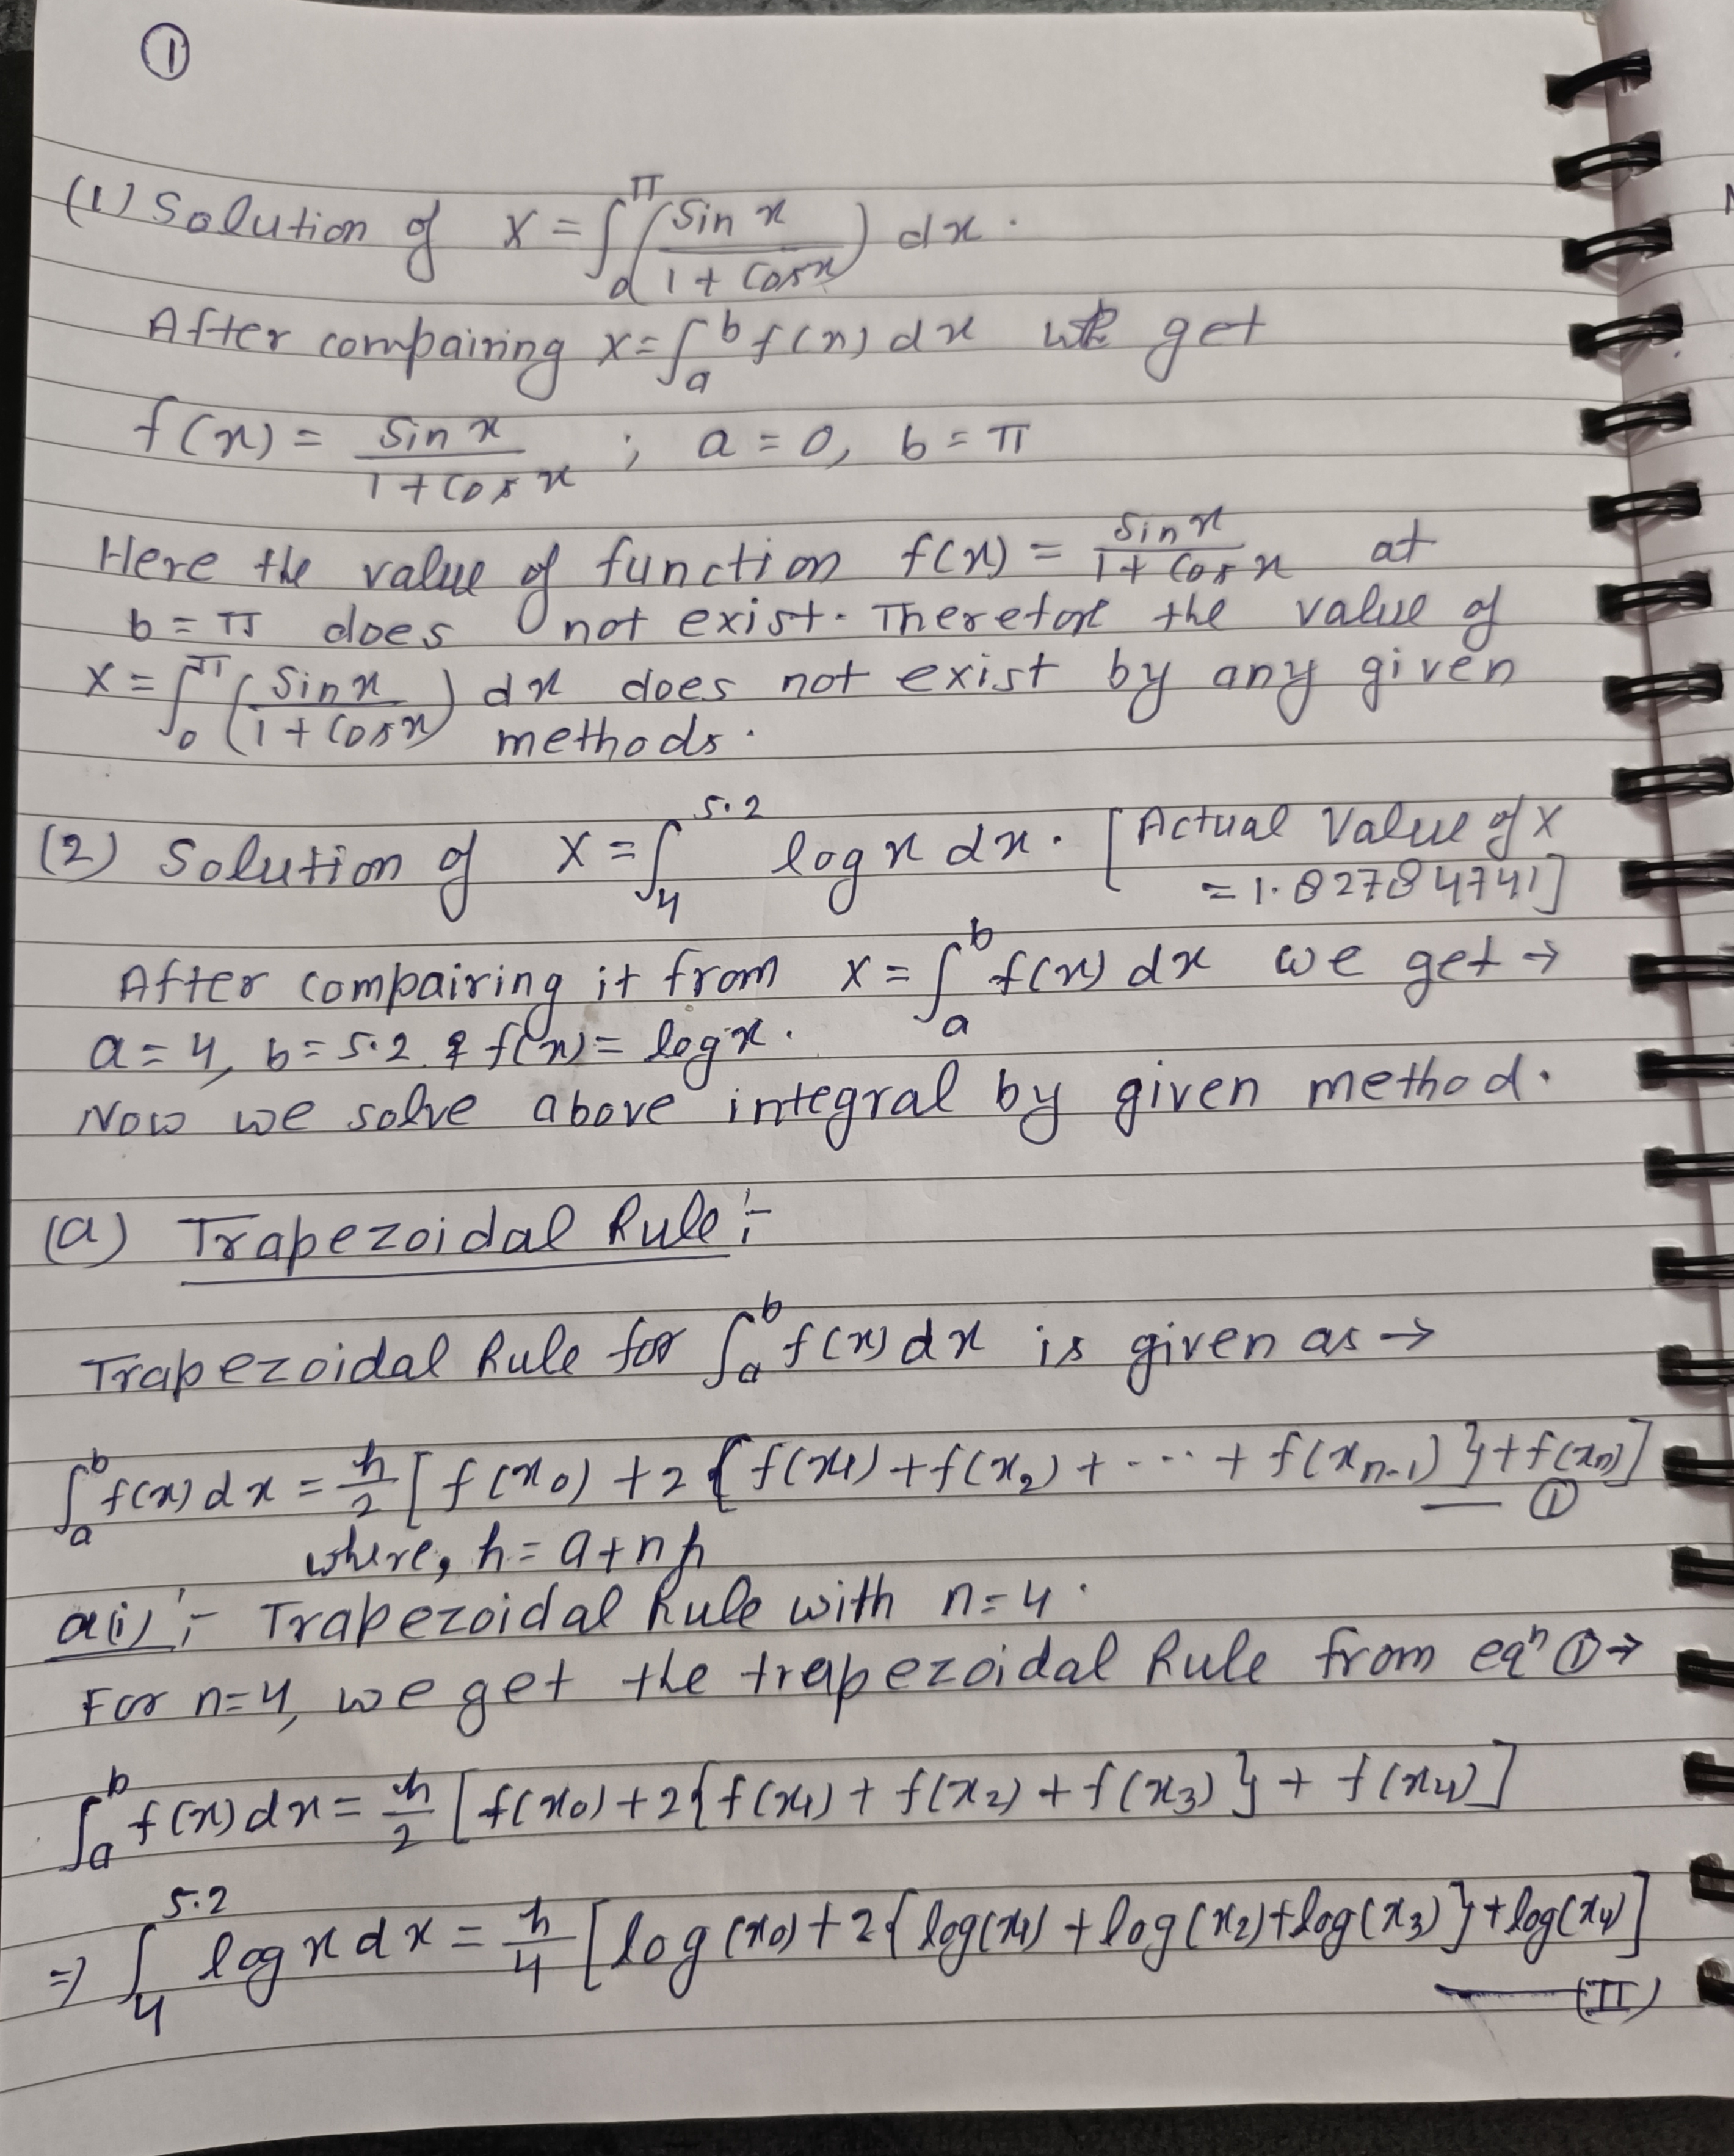 ①
(1) Solution of X = ∫₀^π (sin x / 1 + cos x) dx.
After compairing x = ∫ₐᵇ f(x) dx we get
f(x) = sin x / 1 + cos x ; a = 0, b = π
Here the value of function f(x) = sin x / 1 + cos x at
b = π does not exist. Therefore the value of
X = ∫₀^π (sin x / 1 + cos x) dx does not exist by any given
methods.
(2) Solution of X = ∫₄^5.2 log x dx. [Actual Value of X
= 1.82784741]
After compairing it from x = ∫ₐᵇ f(x) dx we get →
a = 4, b = 5.2 & f(x) = log x.
Now we solve above integral by given method.
(a) Trapezoidal Rule :-
Trapezoidal Rule for ∫ₐᵇ f(x) dx is given as →
∫ₐᵇ f(x) dx = h/2 [f(x₀) + 2{f(x₁) + f(x₂) + --- + f(xₙ₋₁)} + f(xₙ)]
— ①
where, h = a + nh
a(i) :- Trapezoidal Rule with n = 4.
For n = 4, we get the trapezoidal Rule from eqⁿ ① →
∫ₐᵇ f(x) dx = h/2 [f(x₀) + 2{f(x₁) + f(x₂) + f(x₃)} + f(x₄)]
⇒ ∫₄^5.2 log x dx = h/4 [log(x₀) + 2{log(x₁) + log(x₂) + log(x₃)} + log(x₄)]
— (II)